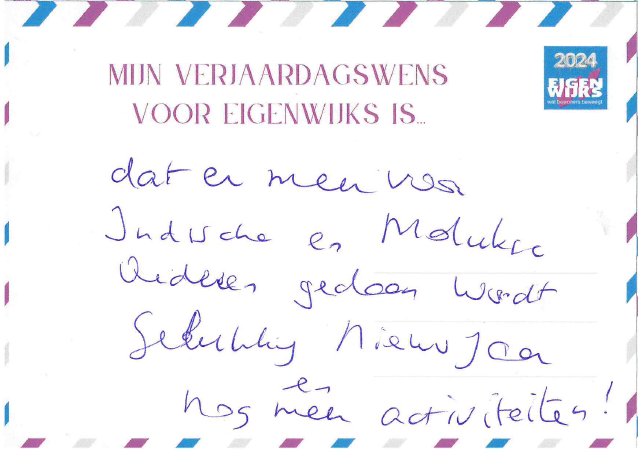 MIJN VERJAARDAGSWENS
VOOR EIGENWIJKS IS...
2024
EIGEN
WIJKS
wat bewoners beweegt
dat er meer voor
Indische en Molukse
Ouderen gedaan wordt
Gelukkig Nieuwjaar
en
nog meer activiteiten!